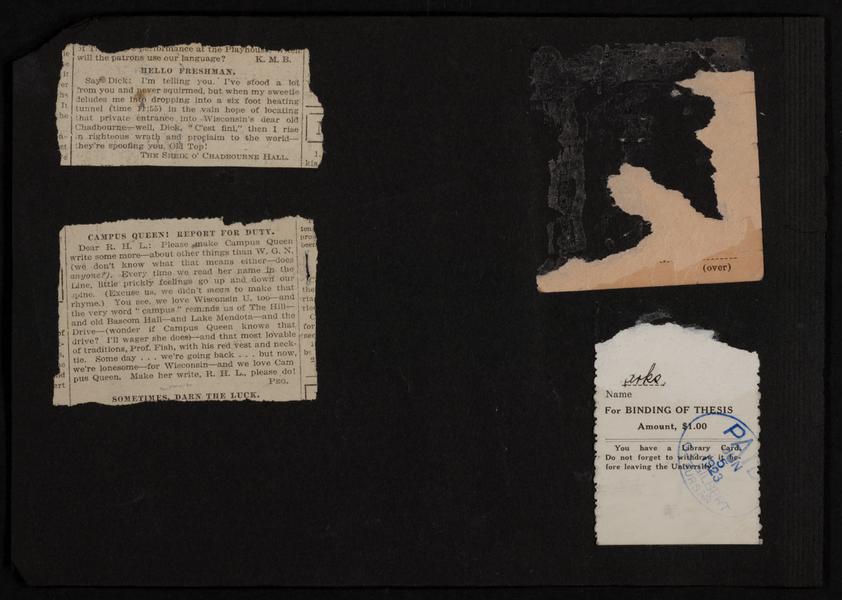 performance at the Playhouse, when
will the patrons use our language? K. M. B.
HELLO FRESHMAN.
Say Dick: I'm telling you. I've stood a lot
from you and never squirmed, but when my sweetie
deludes me into dropping into a six foot heating
tunnel (time 11:55) in the vain hope of locating
that private entrance into Wisconsin's dear old
Chadbourne—well, Dick, "C'est fini," then I rise
in righteous wrath and proclaim to the world—
they're spoofing you, Old Top!
THE SHEIK O' CHADBOURNE HALL.
CAMPUS QUEEN! REPORT FOR DUTY.
Dear R. H. L.: Please make Campus Queen
write some more—about other things than W. G. N.
(we don't know what that means either—does
anyone?). Every time we read her name in the
Line, little prickly feelings go up and down our
spine. (Excuse us, we didn't mean to make that
rhyme.) You see, we love Wisconsin U. too—and
the very word "campus" reminds us of The Hill—
and old Bascom Hall—and Lake Mendota—and the
Drive—(wonder if Campus Queen knows that
drive? I'll wager she does)—and that most lovable
of traditions, Prof. Fish, with his red vest and neck-
tie. Some day . . . we're going back . . . but now,
we're lonesome—for Wisconsin—and we love Cam
pus Queen. Make her write, R. H. L., please do!
PEG.
SOMETIMES, DARN THE LUCK.
(over)
Name
For BINDING OF THESIS
Amount, $1.00
You have a Library Card.
Do not forget to withdraw it be-
fore leaving the University.
PAID
JUN
1923